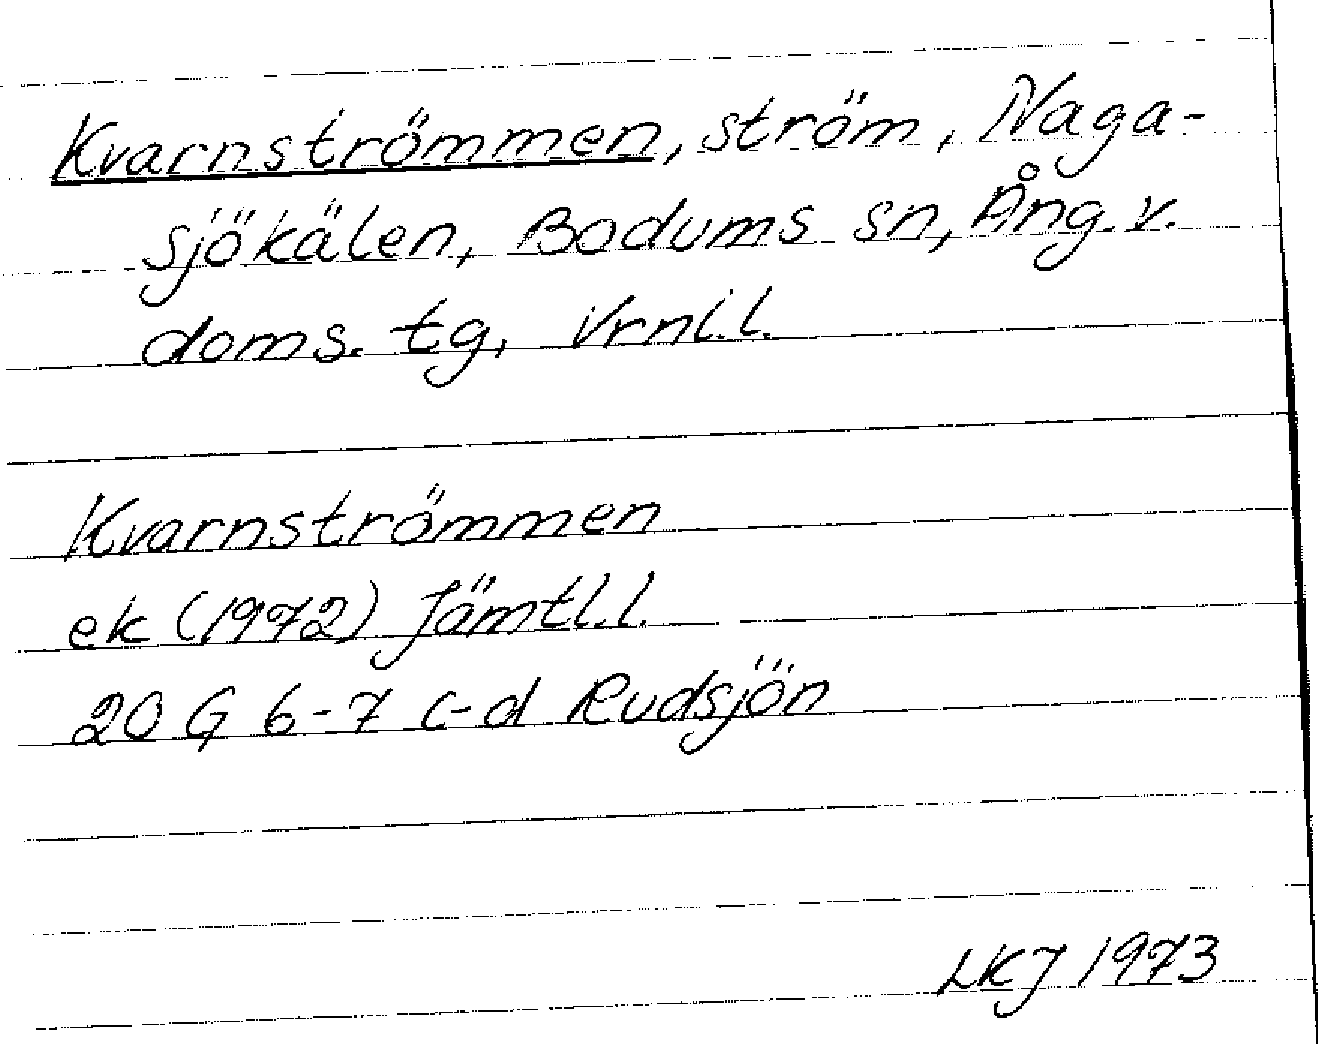 Kvarnströmmen, ström, Naga-
sjökälen, Bodums sn, Ång. v.
doms. tg, Vrnl.l.
Kvarnströmmen
ek (1972) Jämtl.l.
20 G 6-7 c-d Rudsjön
LKJ 1973